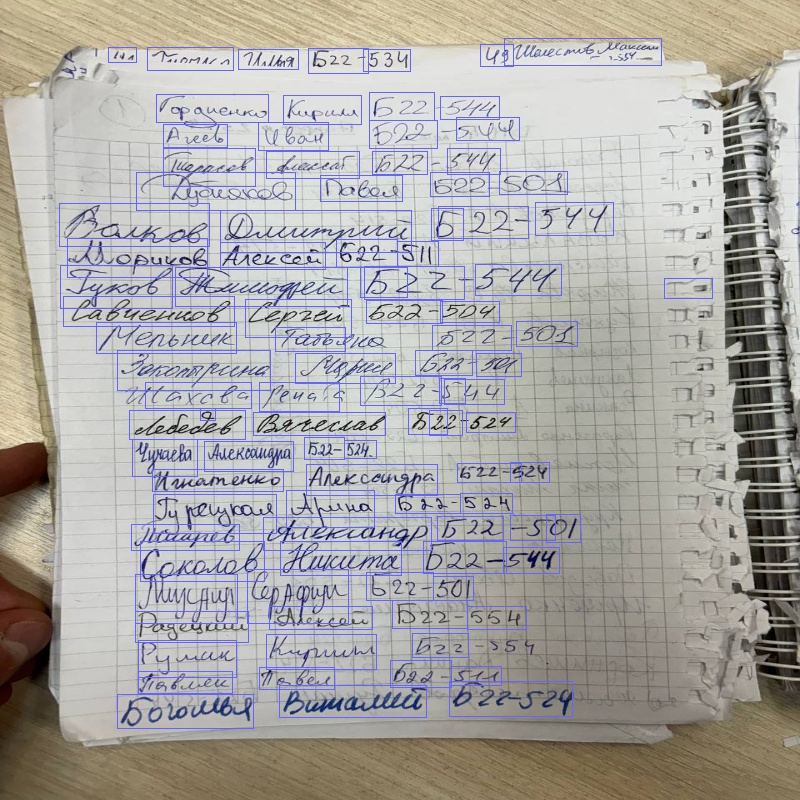 Илья Б22-534
49 Шелестов Максим
Гордиенко Кирилл Б22-544
Агеев Иван Б22-544
Тарасов Б22-544
Дубняков Павел Б22-501
Волков Дмитрий Б22-544
Мориков Алексей Б22-511
Гуков Тимофей Б22-544
Савченков Сергей Б22-504
Мельник Татьяна Б22-501
Закотрина Мария Б22-501
Шахова Рената Б22-544
Лебедев Вячеслав Б22-524
Чучаева Александра Б22-524.
Игнатенко Александра Б22-524
Гурецкая Арина Б22-524
Александр Б22-501
Соколов Никита Б22-544
Серафим Б22-501
Радецкий Алексей Б22-554
Румак Кирилл Б22-554
Павлюк Павел Б22-511
Богомья Виталий Б22-524